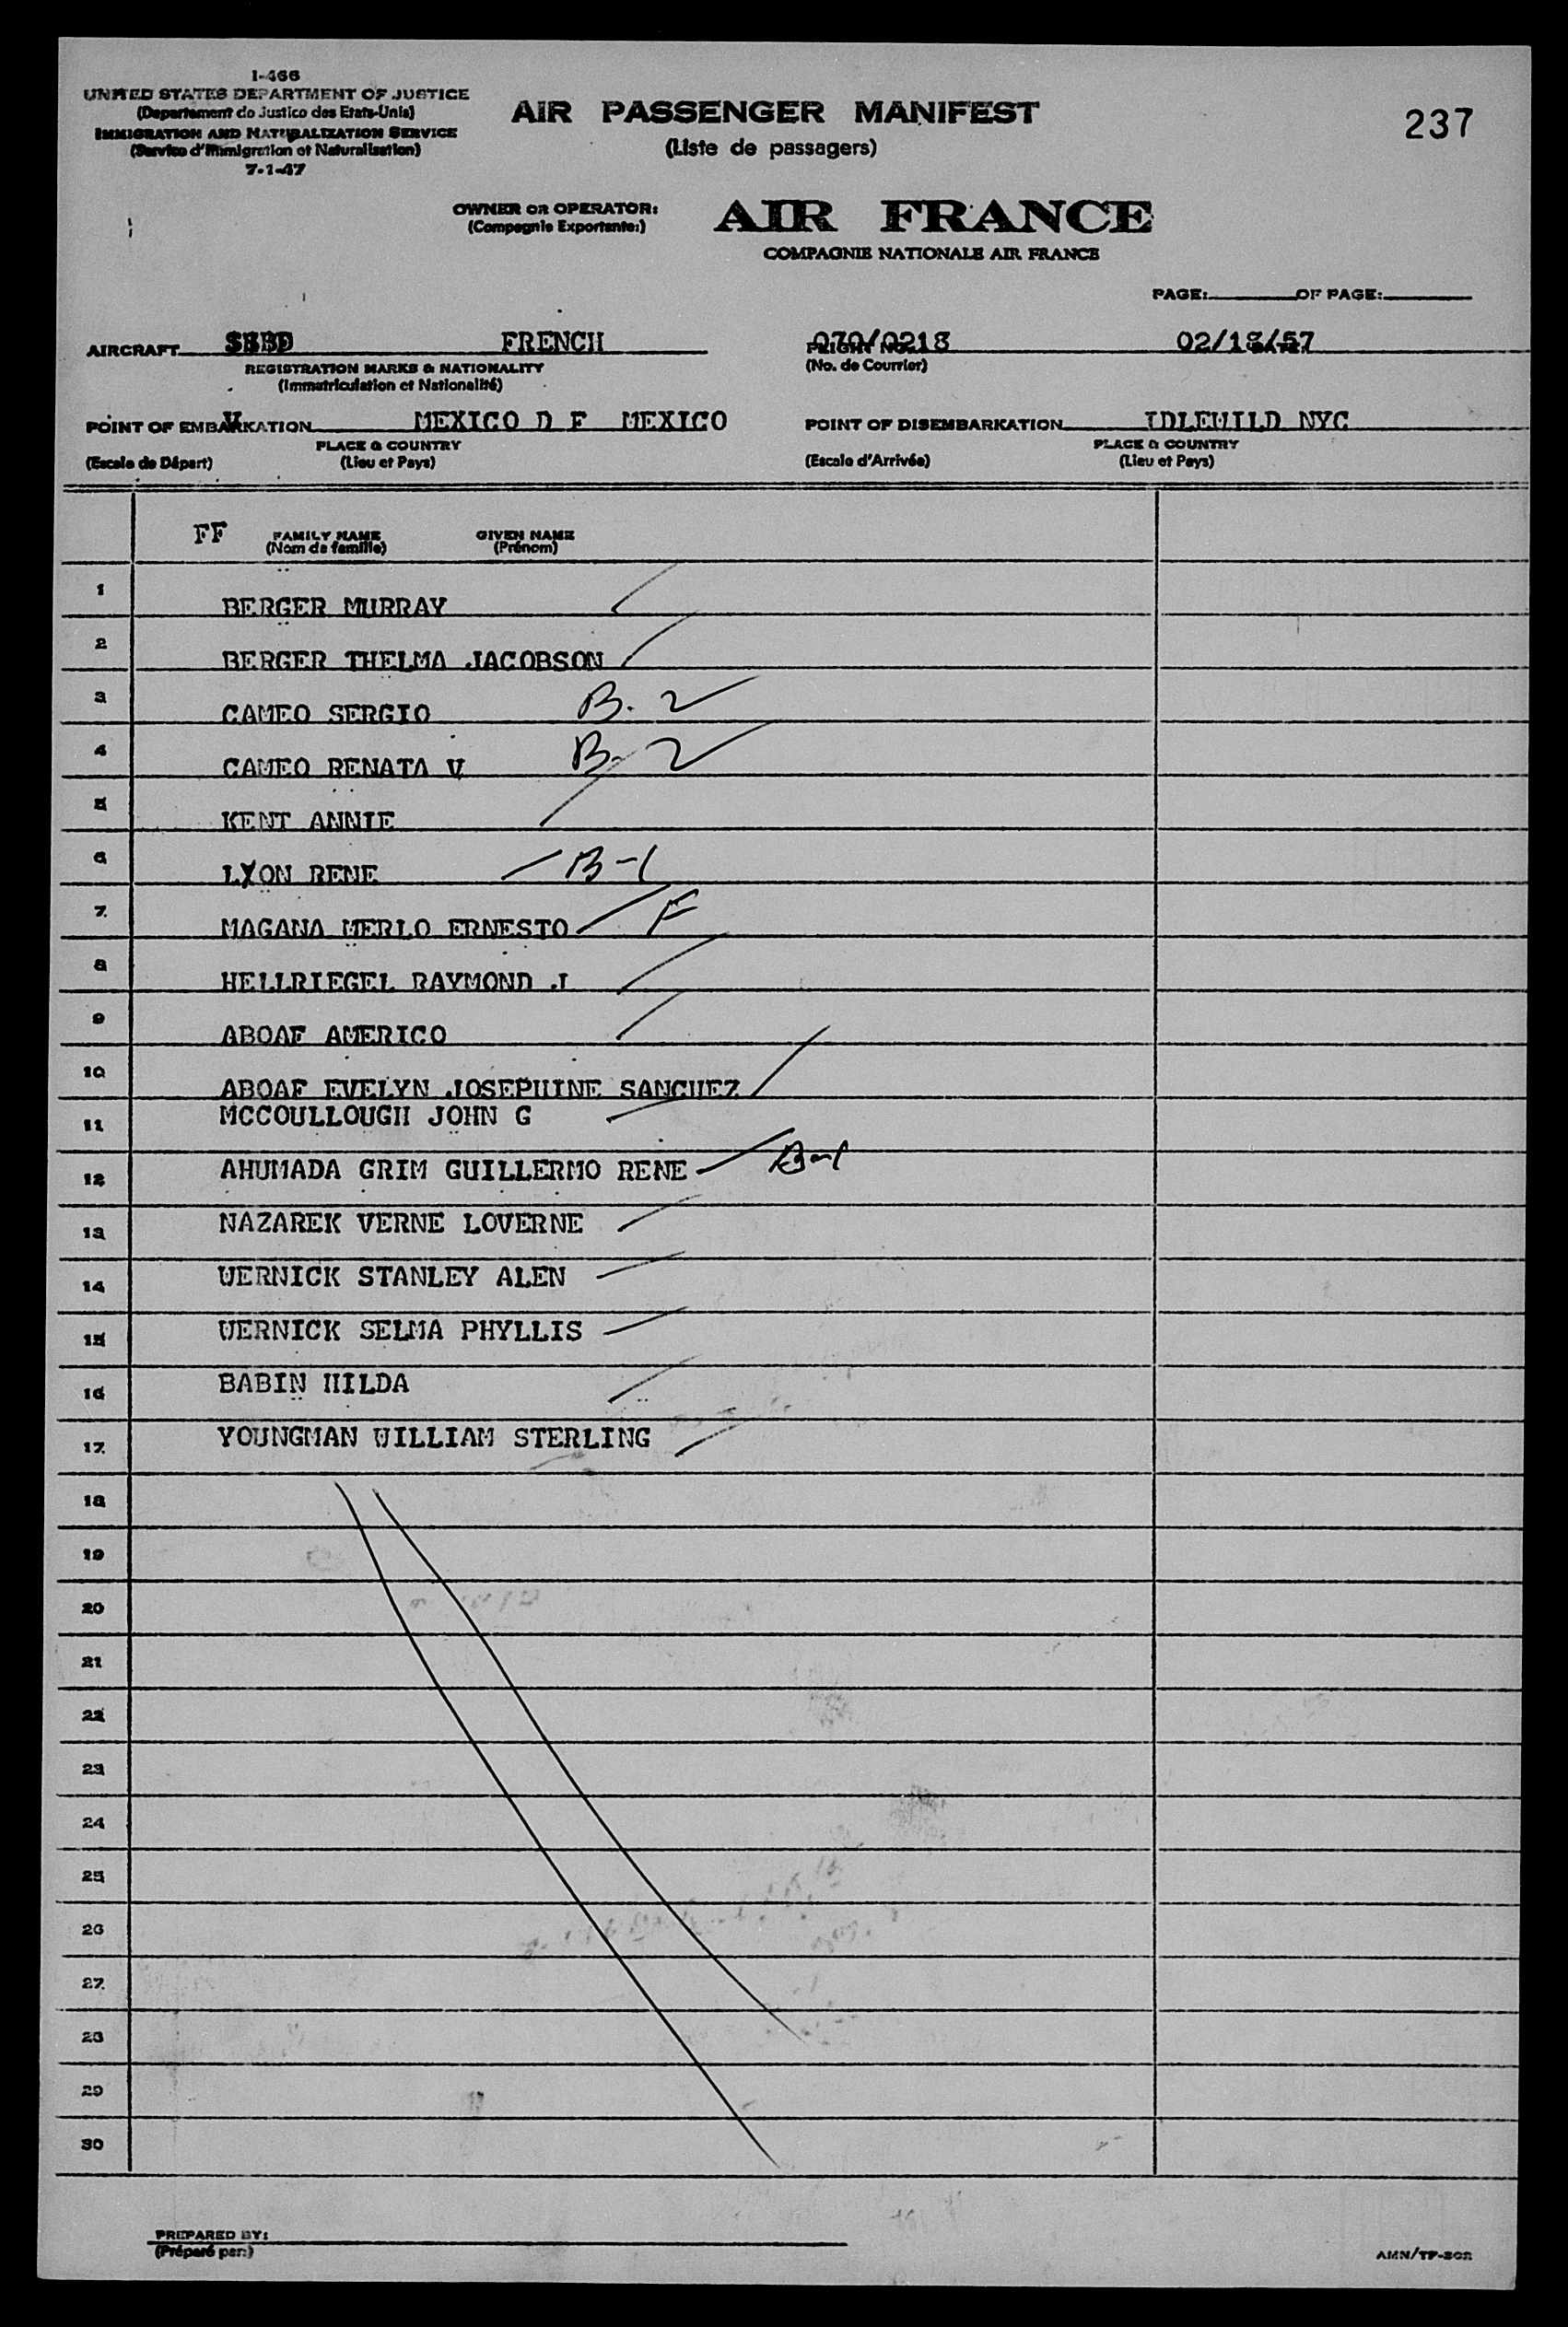 I-466
UNITED STATES DEPARTMENT OF JUSTICE
(Departement de Justice des Etats-Unis)
IMMIGRATION AND NATURALIZATION SERVICE
(Service d'Immigration et Naturalisation)
7-1-47
AIR PASSENGER MANIFEST
(Liste de passagers)
237
OWNER OR OPERATOR:
(Compagnie Exportante:)
AIR FRANCE
COMPAGNIE NATIONALE AIR FRANCE
PAGE: OF PAGE:
AIRCRAFT FRENCH 070/0218 02/18/57
REGISTRATION MARKS & NATIONALITY
(Immatriculation et Nationalité)
FLIGHT NO.
(No. de Courrier)
POINT OF EMBARKATION MEXICO D F MEXICO
PLACE & COUNTRY
(Escale de Départ) (Lieu et Pays)
POINT OF DISEMBARKATION IDLEWILD NYC
PLACE & COUNTRY
(Escale d'Arrivée) (Lieu et Pays)
FF FAMILY NAME GIVEN NAME
(Nom de famille) (Prénom)
1 BERGER MURRAY
2 BERGER THELMA JACOBSON
3 CAMEO SERGIO B.2
4 CAMEO RENATA V B-2
5 KENT ANNIE
6 LYON RENE B-1
7 MAGANA MERLO ERNESTO F
8 HELLRIEGEL RAYMOND J
9 ABOAF AMERICO
10 ABOAF EVELYN JOSEPHINE SANCHEZ
11 MCCOULLOUGH JOHN G
12 AHUMADA GRIM GUILLERMO RENE B-1
13 NAZAREK VERNE LOVERNE
14 WERNICK STANLEY ALEN
15 WERNICK SELMA PHYLLIS
16 BABIN HILDA
17 YOUNGMAN WILLIAM STERLING
18
19
20
21
22
23
24
25
26
27
28
29
30
PREPARED BY:
(Préparé par:)